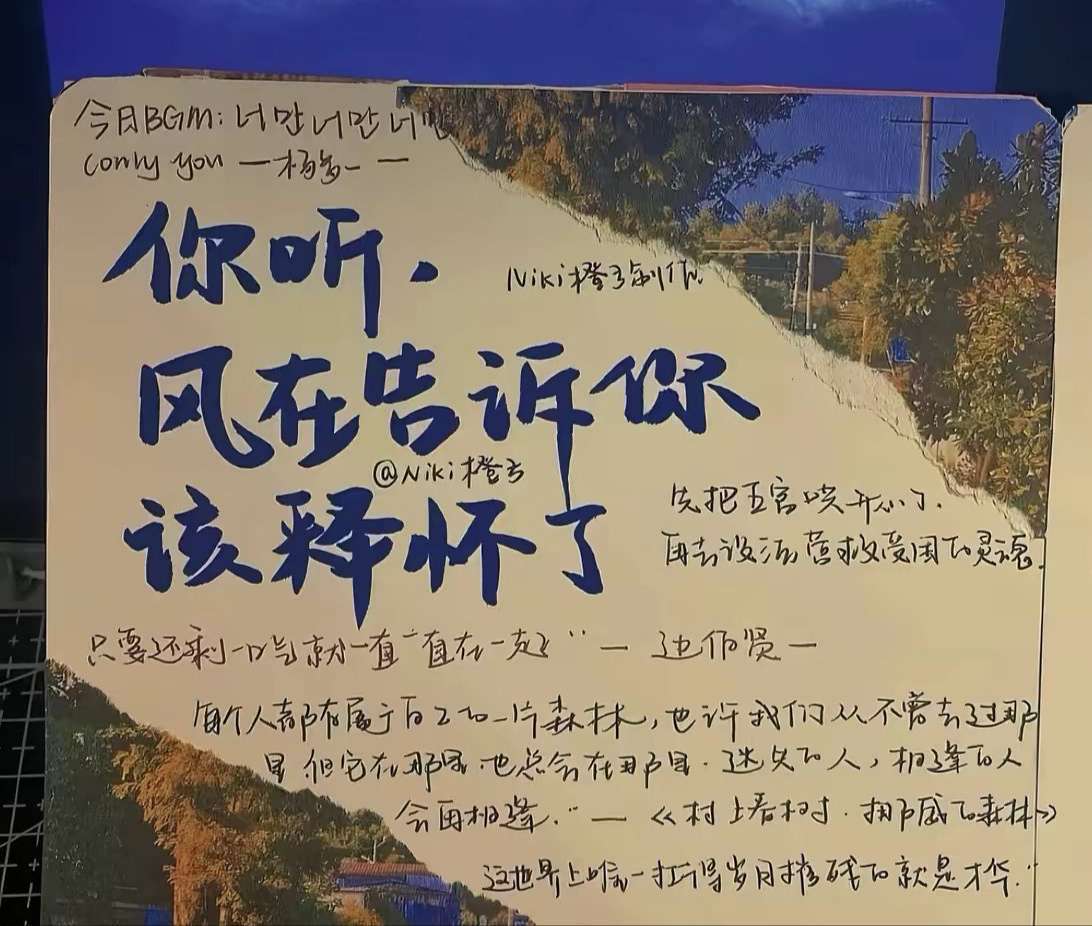 今日BGM: 너만 너만 너만
(only you — 杨多一 —
你听,
Niki橙子制作
风在告诉你
@Niki橙子
该释怀了
先把五官哄开心了.
再去设法营救受困的灵魂.
只要还剩一口气就一直一直在一起" — 边伯贤 —
每个人都有属于自己的一片森林,也许我们从不曾去过那
里 但它在那里.也总会在那里.迷失的人,相逢的人
会再相逢." — 《村上春树.挪威的森林》
这世界上唯一扛得岁月摧残的就是才华."